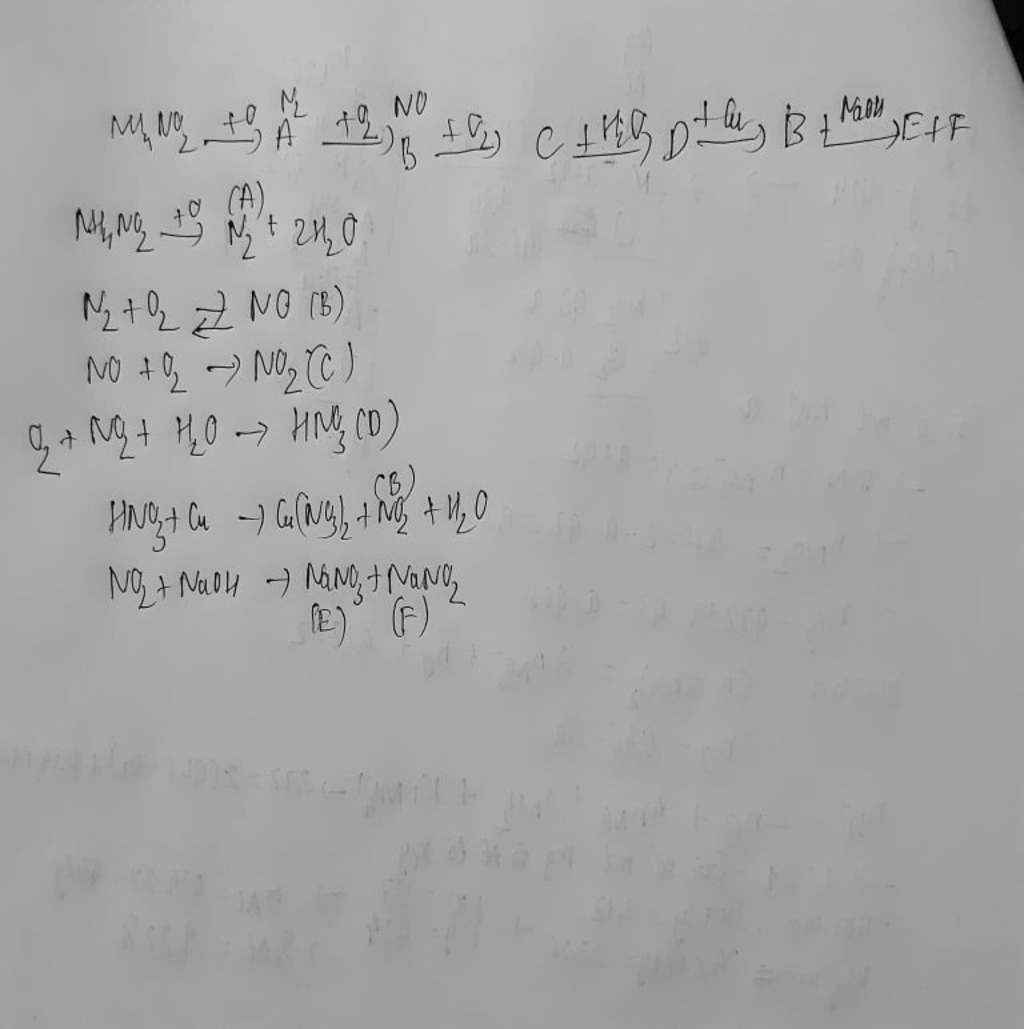 NH4NO2 +O→ A N2 +O2→ B NO +O2→ C +H2O→ D +Cu→ B +NaOH→ E+F
NH4NO2 +O→ (A) N2 + 2H2O
N2 + O2 ⇄ NO (B)
NO + O2 → NO2 (C)
O2 + NO2 + H2O → HNO3 (D)
HNO3 + Cu → Cu(NO3)2 + NO2 (B) + H2O
NO2 + NaOH → NaNO3 + NaNO2
(E) (F)